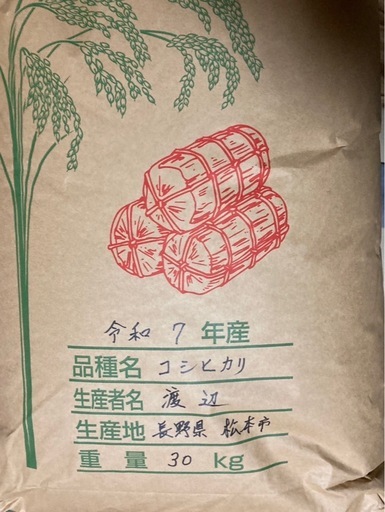 令和 7 年産
品種名 コシヒカリ
生産者名 渡辺
生産地 長野県 松本市
重量 30 kg